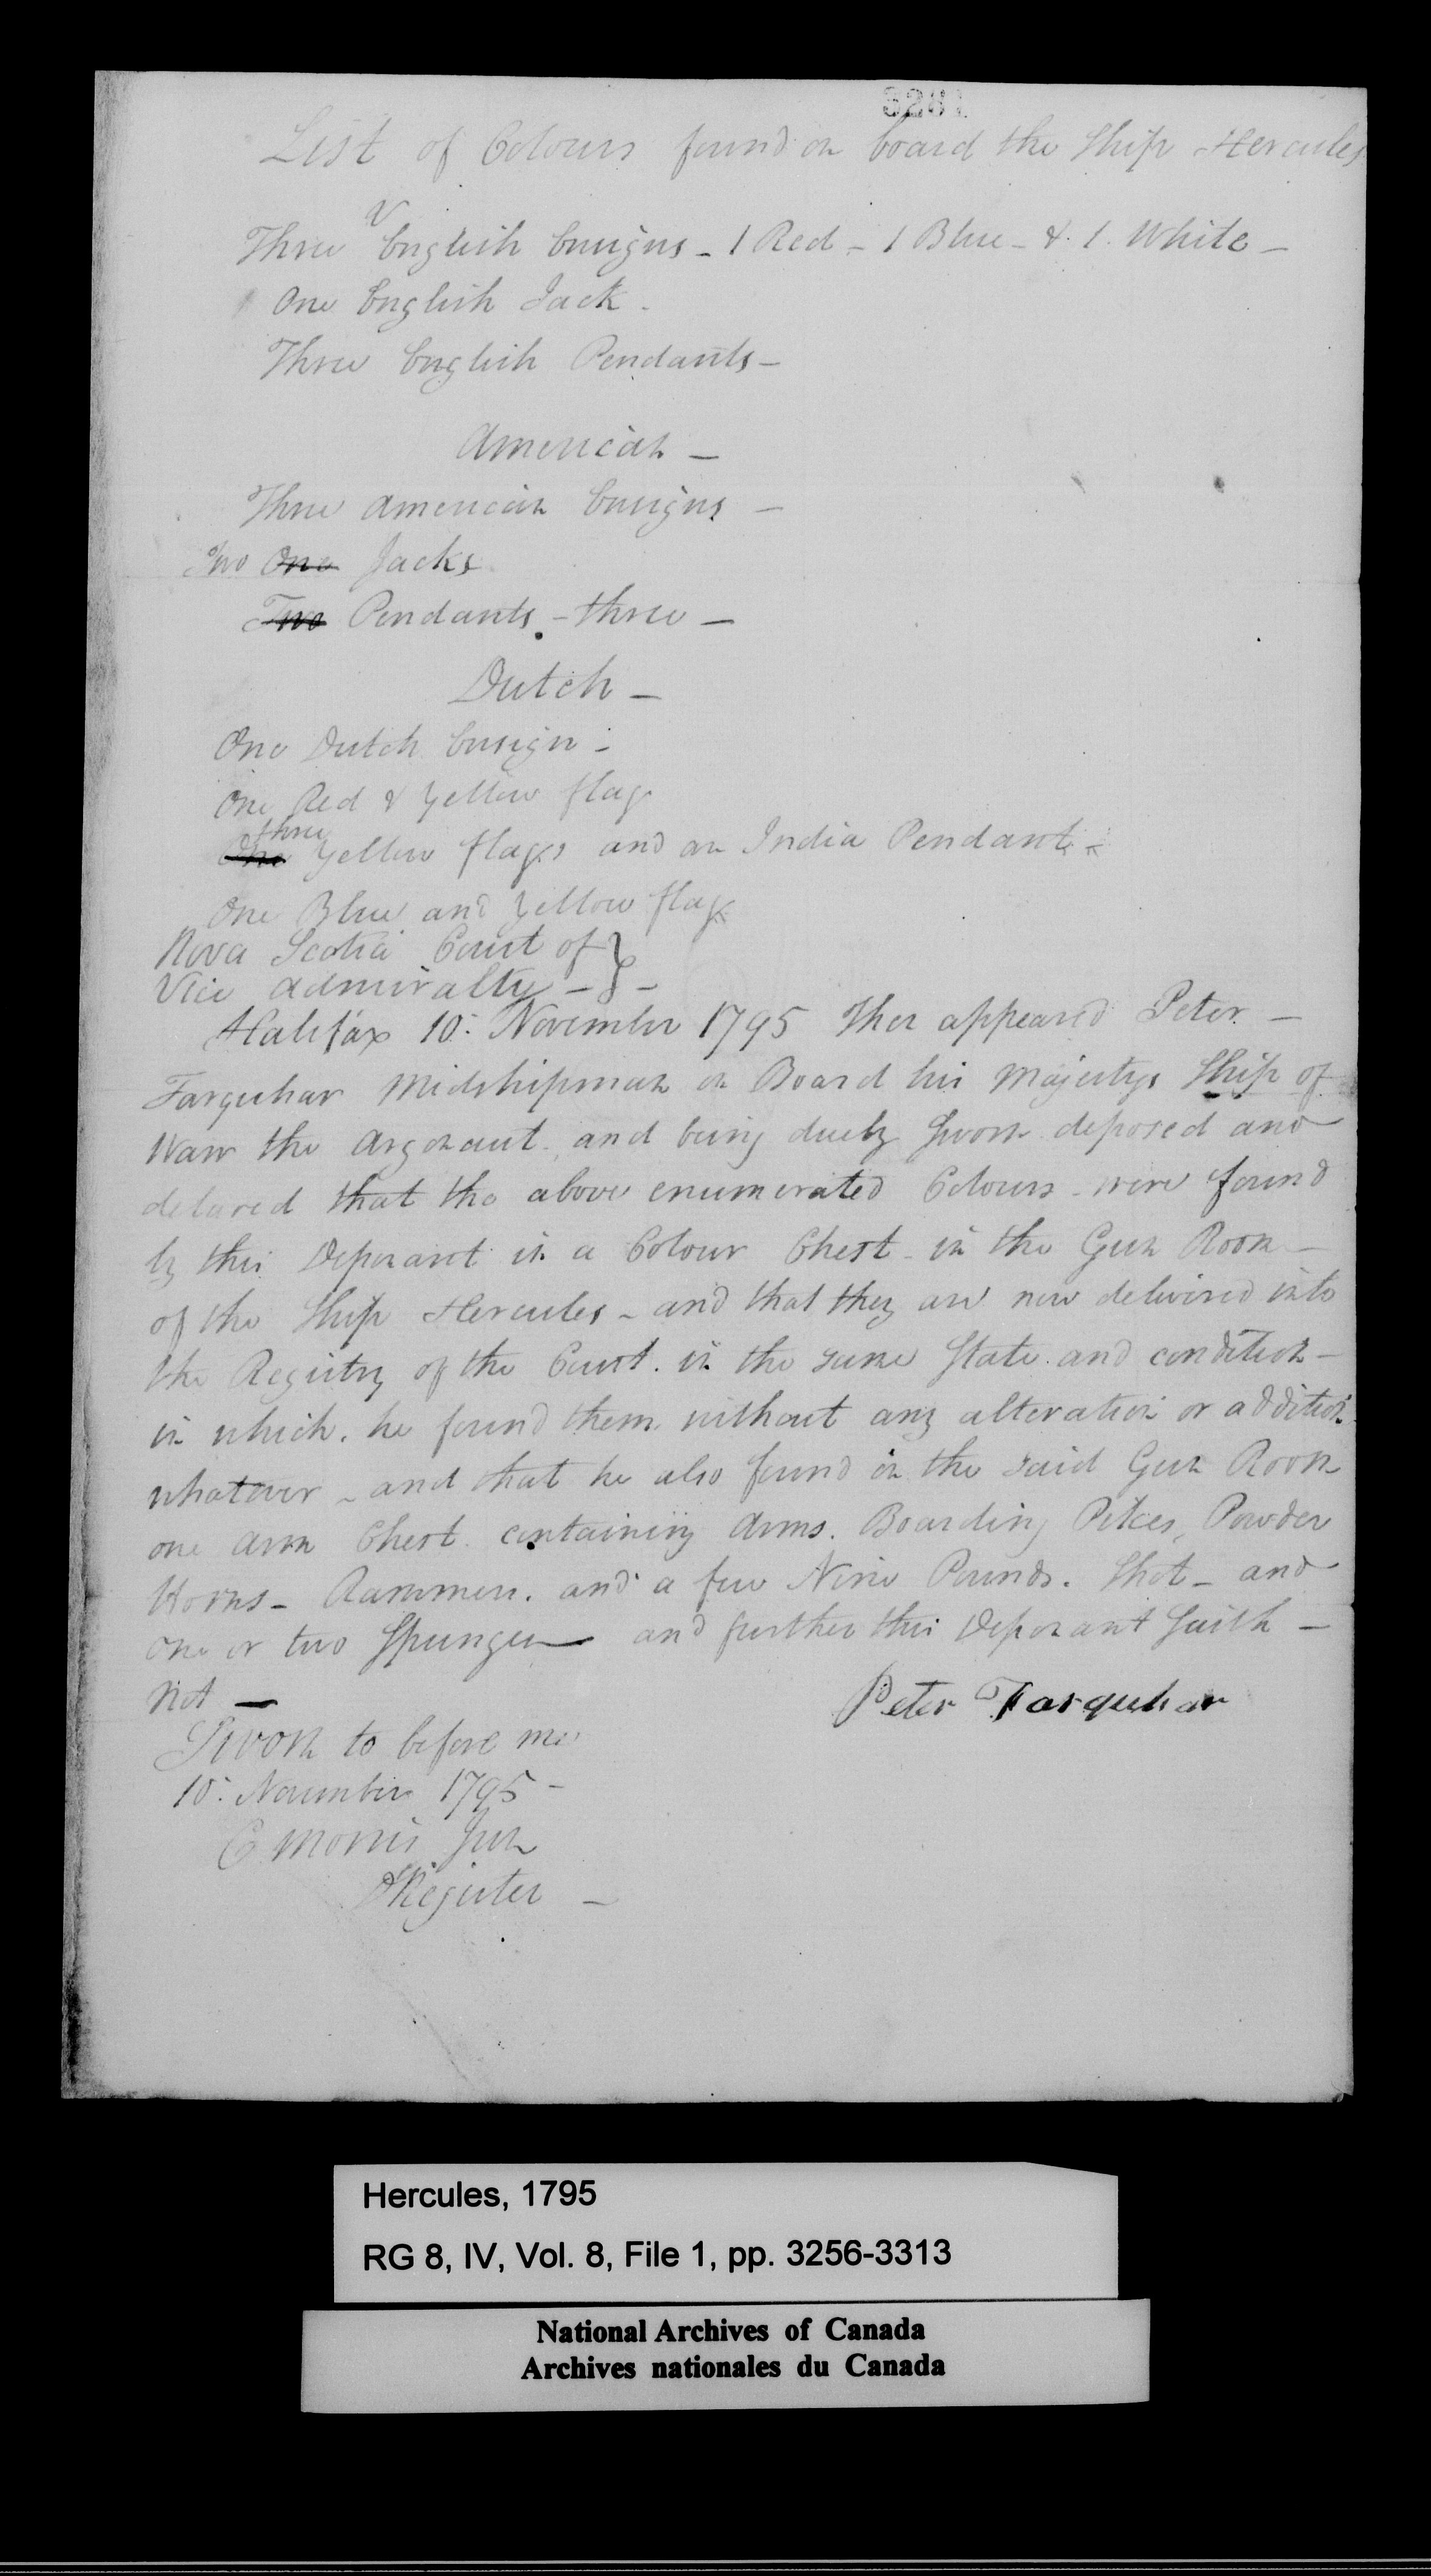 3281
List of Colours found on board the Ship Hercules
Three English Ensigns - 1 Red - 1 Blue - & 1. White -
One English Jack -
Three English Pendants -
American -
Three American Ensigns -
Two One Jacks
Two Pendants - three -
Dutch -
One Dutch Ensign -
One Red & Yellow flag
three
One Yellow flags and an India Pendant -
One Blue and Yellow flag
Nova Scotia Court of }
Vice Admiralty - } -
Halifax 10: November 1795 Then appeared Peter -
Farquhar Midshipman on Board his Majestys Ship of
Warr the Argonaut, and being duely Sworn deposed and
delared that the above enumerated Colours - were found
by this Deponant in a Colour Chest - in the Gun Room -
of the Ship Hercules - and that they are now delivered into
the Registry of the Court. in the same State and condition -
in which. he found them, without any alteration or addition
whatever - and that he also found in the said Gun Room
one Arm Chest. containing Arms. Boarding Pikes, Powder
Horns - Rammers. and a few Nine Pounds. Shot - and
one or two Spunges and further this Deponant Saith -
Not -
Peter Farquhar
Sworn to before me
10: November 1795 -
C Morris Jun
DRegister -
Hercules, 1795
RG 8, IV, Vol. 8, File 1, pp. 3256-3313
National Archives of Canada
Archives nationales du Canada